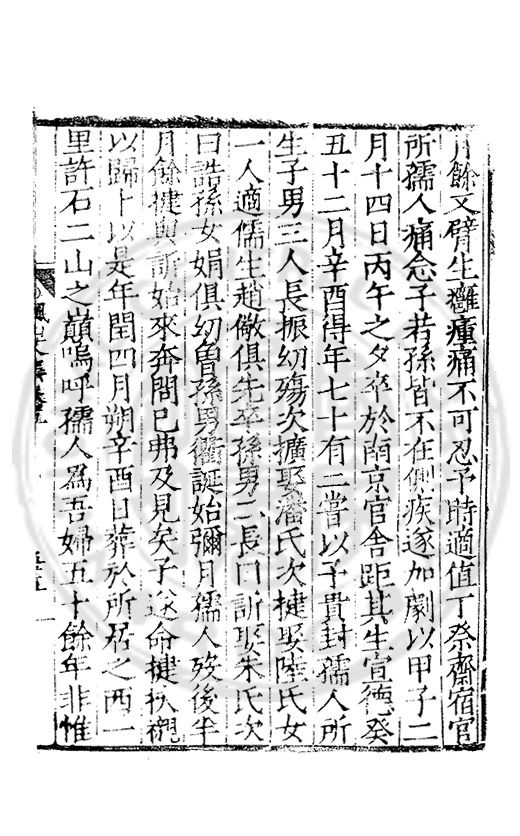 月餘又臂生癰瘇痛不可忍予時適值丁祭齋宿官
所孺人痛念子若孫皆不在側疾遂加劇以甲子二
月十四日丙午之夕卒於南京官舍距其生宣德癸
丑十二月辛酉得年七十有二嘗以予貴封孺人所
生子男三人長振幼殤次擴娶潘氏次揵娶陸氏女
一人適儒生趙儆俱先卒孫男二長曰訢娶朱氏次
曰誥孫女娟俱幼曾孫男衢誕始彌月孺人歿後半
月餘揵與訢始來奔問已弗及見矣予遂命揵扶櫬
以歸卜以是年閏四月朔辛酉日葬於所居之西一
里許石二山之巔嗚呼孺人為吾婦五十餘年非惟
楓山文集卷五